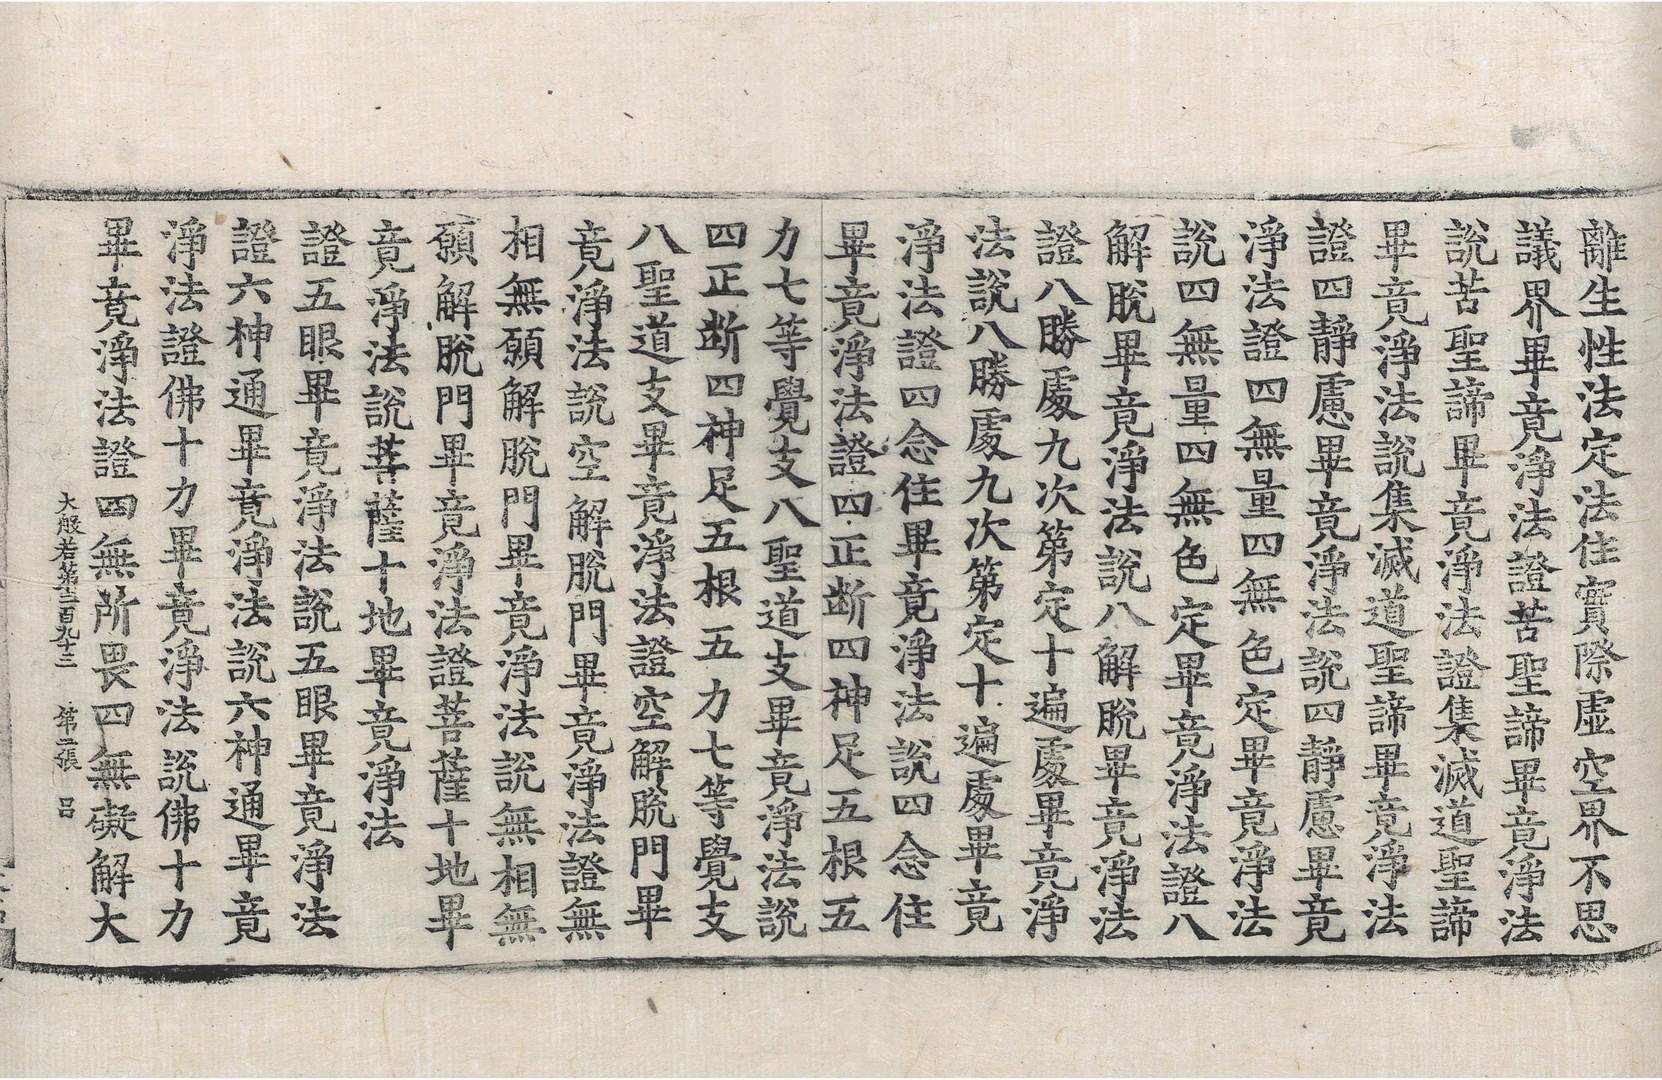 離生性法定法住實際虛空界不思
議界畢竟淨法證苦聖諦畢竟淨法
說苦聖諦畢竟淨法證集滅道聖諦
畢竟淨法說集滅道聖諦畢竟淨法
證四靜慮畢竟淨法說四靜慮畢竟
淨法證四無量四無色定畢竟淨法
說四無量四無色定畢竟淨法證八
解脫畢竟淨法說八解脫畢竟淨法
證八勝處九次第定十遍處畢竟淨
法說八勝處九次第定十遍處畢竟
淨法證四念住畢竟淨法說四念住
畢竟淨法證四正斷四神足五根五
力七等覺支八聖道支畢竟淨法說
四正斷四神足五根五力七等覺支
八聖道支畢竟淨法證空解脫門畢
竟淨法說空解脫門畢竟淨法證無
相無願解脫門畢竟淨法說無相無
願解脫門畢竟淨法證菩薩十地畢
竟淨法說菩薩十地畢竟淨法
證五眼畢竟淨法說五眼畢竟淨法
證六神通畢竟淨法說六神通畢竟
淨法證佛十力畢竟淨法說佛十力
畢竟淨法證四無所畏四無礙解大
大般若第二百九十三 第二張 呂